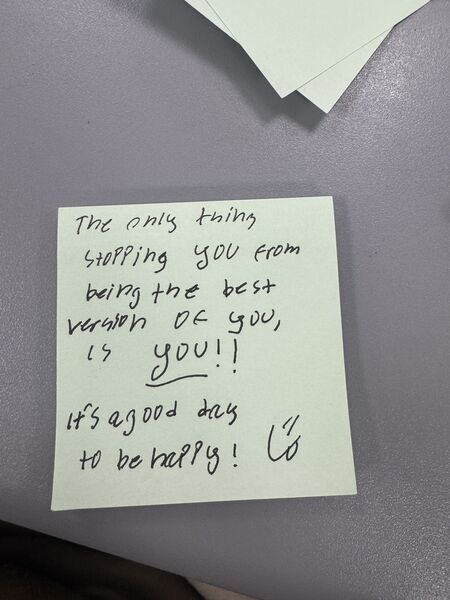 The only thing
stopping you from
being the best
version of you,
is you!!
it's a good day
to be happy!